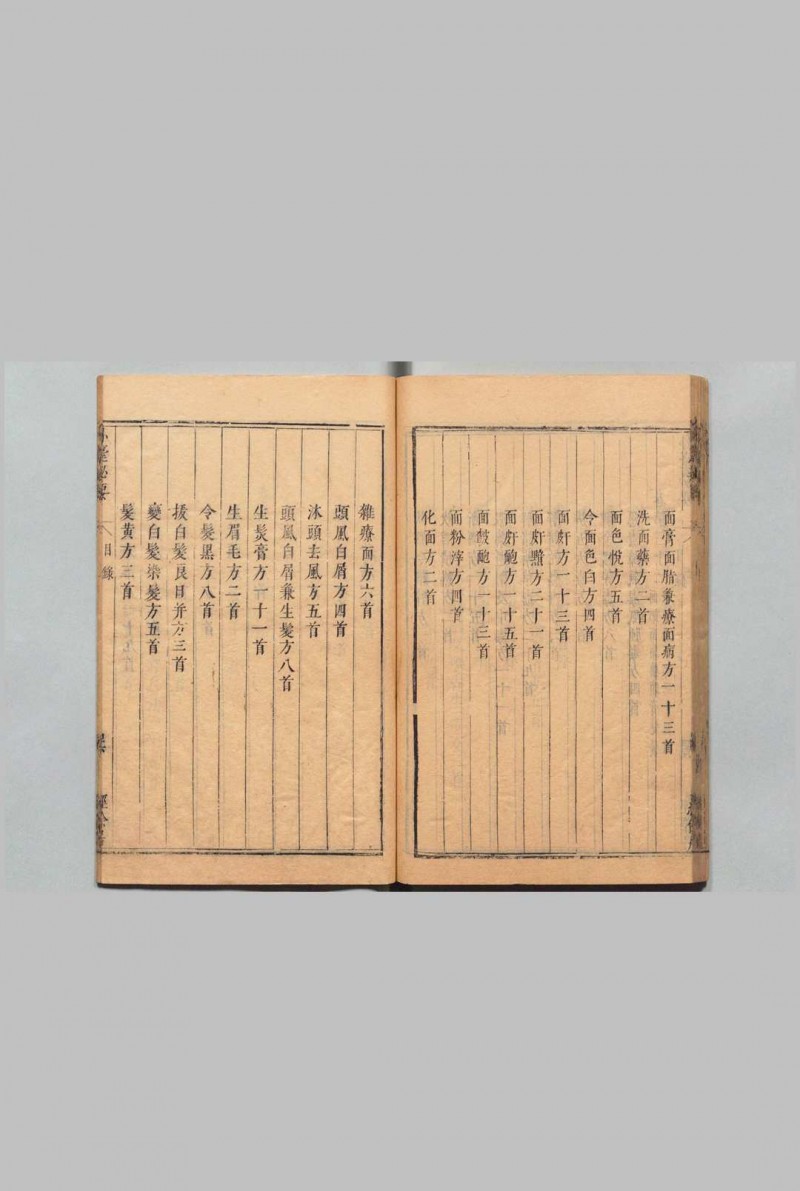 面膏面脂兼療面病方一十三首
洗面藥方二首
面色悅方五首
令面色白方四首
面皯方一十三首
面皯䵳方二十一首
面皯皰方一十五首
面皶皰方一十三首
面粉滓方四首
化面方二首
雜療面方六首
頭風白屑方四首
沐頭去風方五首
頭風白屑兼生髮方八首
生髮膏方一十一首
生眉毛方二首
令髮黑方八首
拔白髮良日并方三首
變白髮染髮方五首
髮黃方三首
外臺秘要
目錄
經餘居